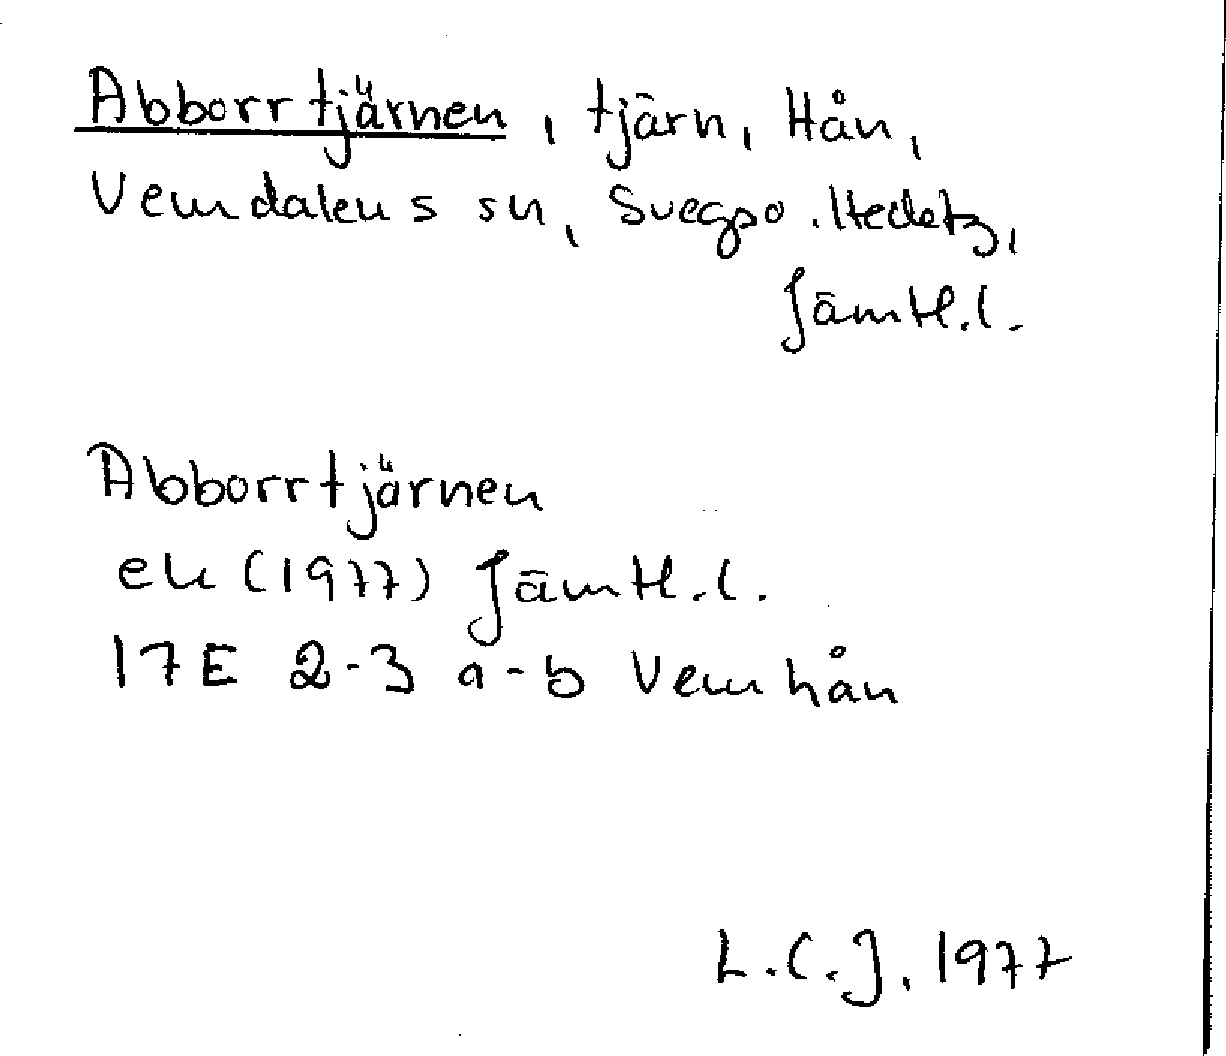 Abborrtjärnen, tjärn, Hån,
Vemdalens sn, Svegs po. Hedetz,
Jämtl.l.
Abborrtjärnen
ek (1977) Jämtl.l.
17E 2-3 a-b Vemhån
L.C.J. 1977